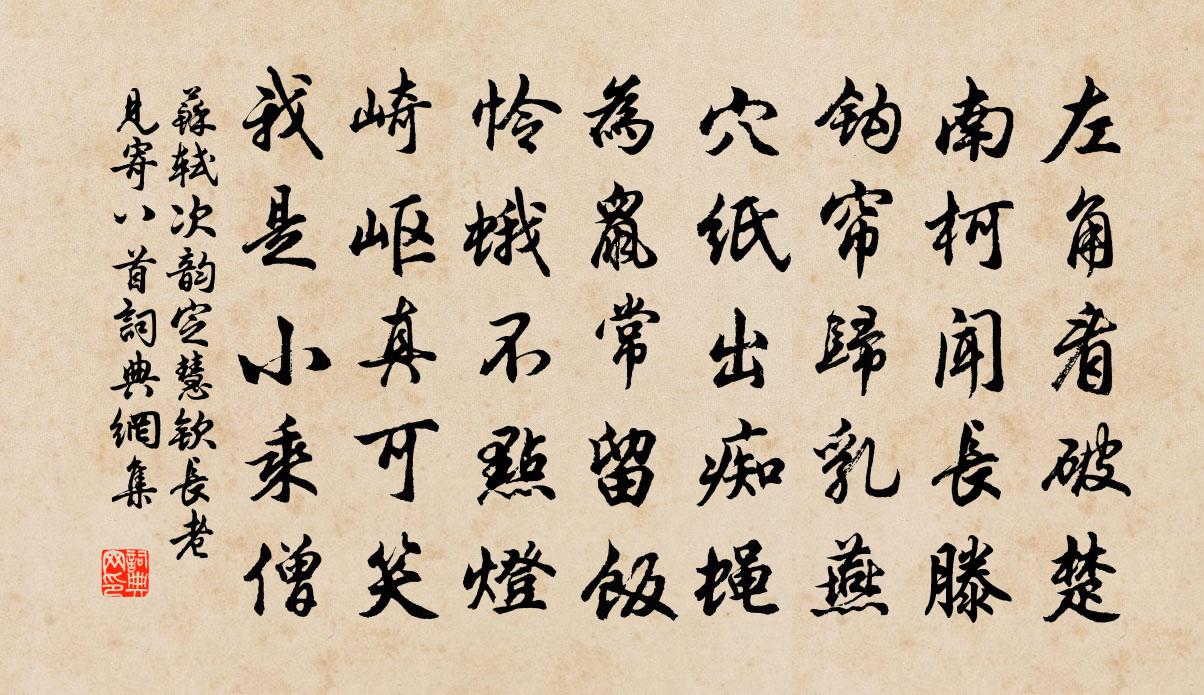 左角看破楚
南柯闻長滕
鈎帘歸乳燕
穴紙出痴蝇
為鼠常留飯
怜蛾不點燈
崎岖真可笑
我是小乘僧
蘇轼次韵定慧欽長老
見寄八首詞典網集
詞典网印